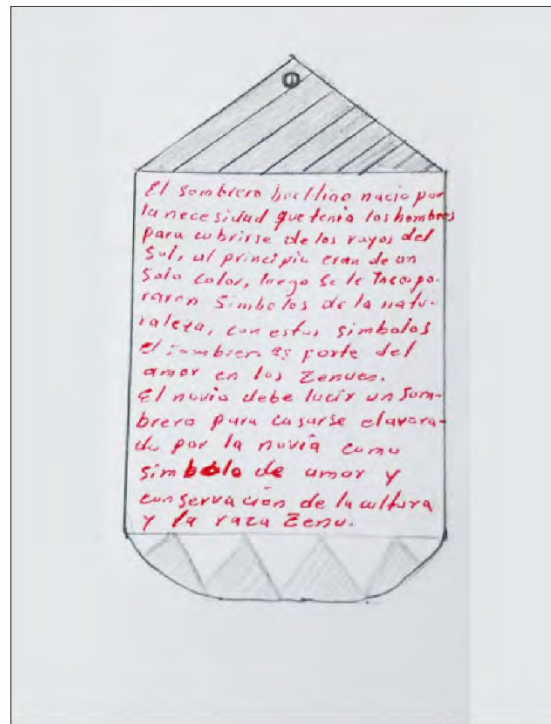 El sombrero bueltiao nacio por
la necesidad que tenia los hombres
para cubrirse de los rayos del
Sol, al principio eran de un
Solo color, luego se le Incorpo-
raron Simbolos de la natu-
raleza, con estos simbolos
el sombrero es parte del
amor en los Zenues.
El novio debe lucir un Som-
brero para casarse elavora-
do por la novia como
simbolo de amor y
conservación de la cultura
y la raza Zenu.